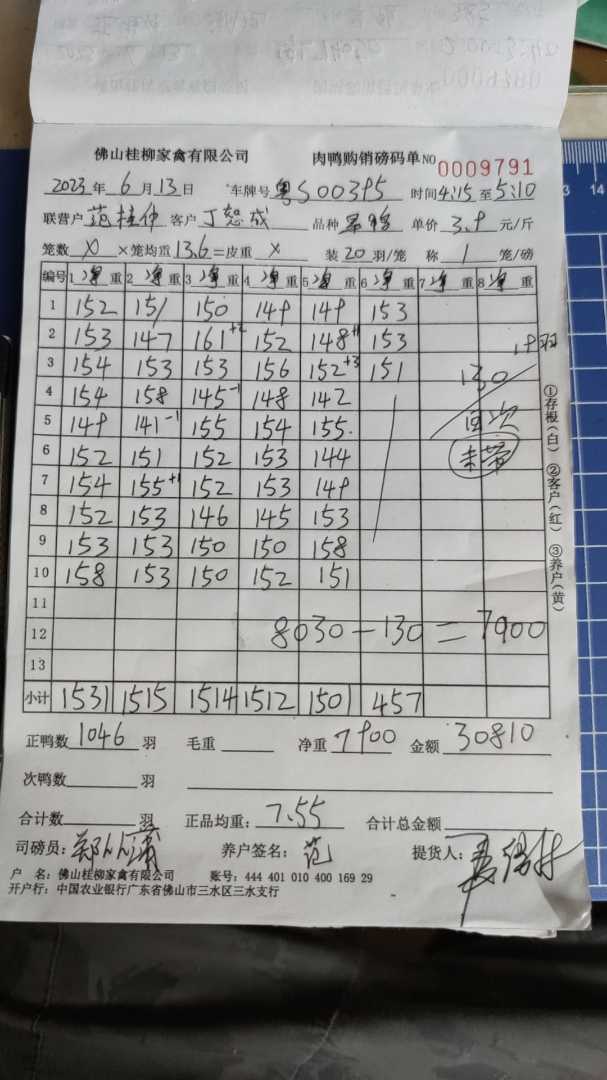 佛山桂柳家禽有限公司 肉鸭购销磅码单 NO 0009791
2023年 6月13日 车牌号 粤S00395 时间4:15至5:10
联营户 范桂仲 客户 丁恕成 品种 单价 3.9 元/斤
笼数 × ×笼均重 13.6 =皮重 × 装 20 羽/笼 称 1 笼/磅
编号 1 净 重 2 净 重 3 净 重 4 净 重 5 净 重 6 净 重 7 净 重 8 净 重
1 152 151 150 149 149 153
2 153 147 161+2 152 148+1 153
19羽
3 154 153 153 156 152+3 151
130
4 154 158 145-1 148 142
5 149 141-1 155 154 155.
6 152 151 152 153 144
7 154 155+1 152 153 149
8 152 153 146 145 153
9 153 153 150 150 158
10 158 153 150 152 151
11
12 8030-130=7900
13
小计 1531 1515 1514 1512 1501 457
①存根(白) ②客户(红) ③养户(黄)
正鸭数 1046 羽 毛重 净重 7900 金额 30810
次鸭数 羽
合计数 羽 正品均重: 7.55 合计总金额
司磅员: 养户签名: 范 提货人:
户 名: 佛山桂柳家禽有限公司 账号: 444 401 010 400 169 29
开户行: 中国农业银行广东省佛山市三水区三水支行
13 14